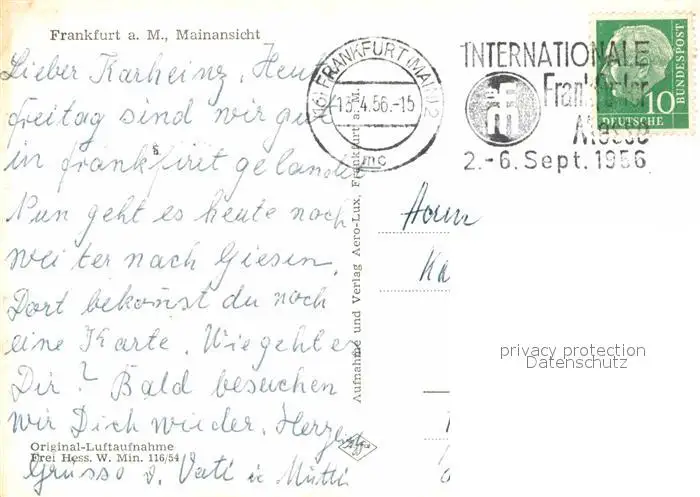 Frankfurt a. M., Mainansicht
Lieber Karheinz, Heut
freitag sind wir gut
in frankfurt gelandet
Nun geht es heute noch
weiter nach Giesen.
Dort bekomst du noch
eine Karte. Wie geht es
Dir? Bald besuchen
wir Dich wieder. Herzl
Grüsse v. Vati u Mutti
Original-Luftaufnahme
Frei Hess. W. Min. 116/54
Aufnahme und Verlag Aero-Lux, Frankfurt a. M.
(16) FRANKFURT (MAIN) 2
13.4.56.-15
mc
INTERNATIONALE
Frankfurter
Messe
2.-6. Sept. 1956
10
DEUTSCHE
BUNDESPOST
Herrn
Ka
privacy protection
Datenschutz